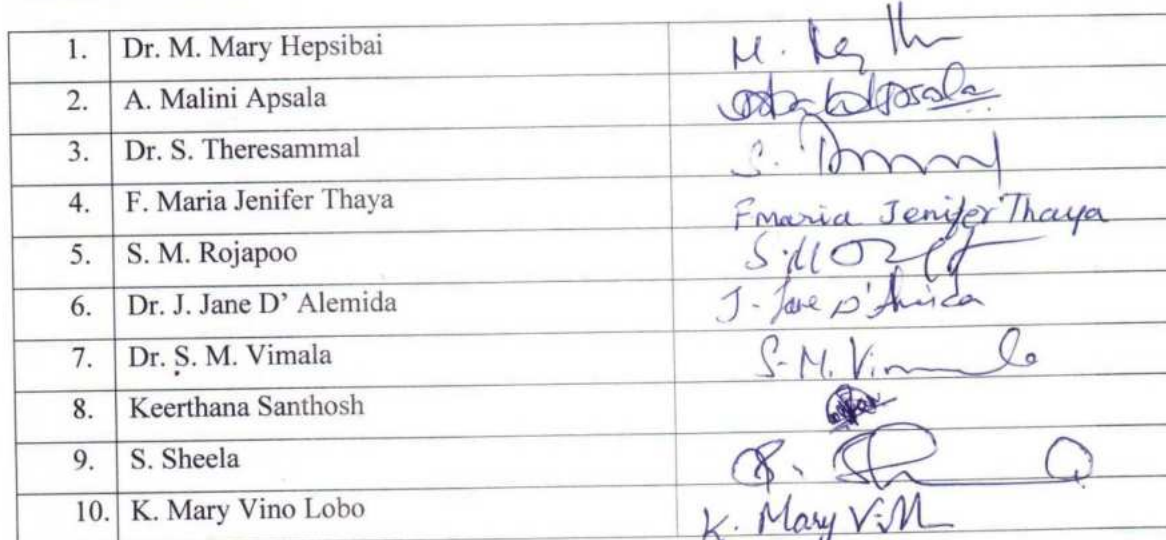 1. Dr. M. Mary Hepsibai M.
2. A. Malini Apsala
3. Dr. S. Theresammal S.
4. F. Maria Jenifer Thaya F maria Jenifer Thaya
5. S. M. Rojapoo S.M
6. Dr. J. Jane D' Alemida J. Jane D'
7. Dr. S. M. Vimala S. M. Vimala
8. Keerthana Santhosh
9. S. Sheela S.
10. K. Mary Vino Lobo K. Mary